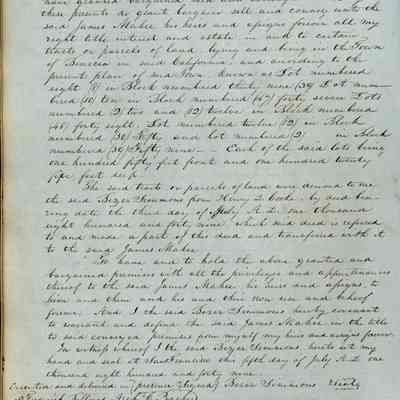 have granted bargained
these presents do grant bargain sell and convey unto the
said James Maher his heirs and assigns forever all my
right title interest and estate in and to certain
tracts or parcels of land lying and being in the Town
of Benicia in said California, and according to the
present plan of said Town, known as Lot numbered
eight (8) in Block numbered thirty nine (39) Lot num-
bered (10) ten in Block numbered (47) forty seven Lots
numbered 2 two and (12) twelve in Block numbered
(48) forty eight, Lot numbered twelve (12) in Block
numbered (50) Fifty and lot numbered (2) in Block
numbered (59) Fifty nine — Each of the said lots being
one hundred fifty feet front and one hundred twenty
five feet deep.
The said tracts or parcels of land were deeded to me
the said Bezer Simmons from Henry D. Cooke by deed bea-
ring date the third day of July A.D. one thousand
eight hundred and forty nine, which said deed is referred
to and made a part of this deed and transferred with it
to the said James Maher
To have and to hold the above granted and
bargained premises with all the privileges and appurtenances
thereof to the said James Maher his heirs and assigns, to
him and them and his and their own use and behoof
forever. And I the said Bezer Simmons hereby covenant
to warrant and defend the said James Maher in the title
to said conveyed premises from myself my heirs and assigns forever
In witness whereof I the said Bezer Simmons hereto set my
hand and seal at San Francisco this fifth day of July A.D. one
thousand eight hundred and forty nine.
Executed and delivered in presence Bezer Simmons